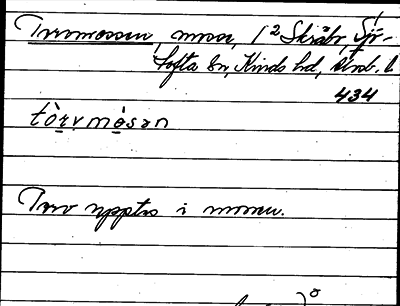 Torvmossen, mosse, 1 2 Skräbr, Sjö-
tofta sn, Kinds hd, Älvsb. l.
434
tòrvmòsən
Torv upptas i mossen.